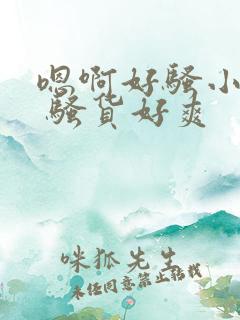 嗯啊好骚小
骚货好爽
咪狐先生
未经同意禁止转载